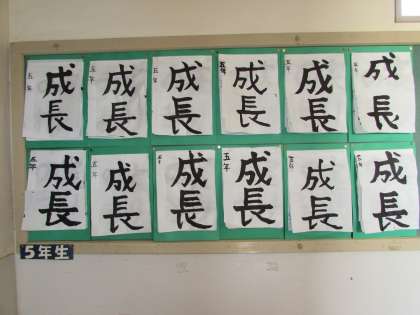 五年 成長
五年 成長
五年 成長
五年 成長
五年 成長
五年 成長
五年 成長
五年 成長
五年 成長
五年 成長
五年 成長
五年 成長
5年生